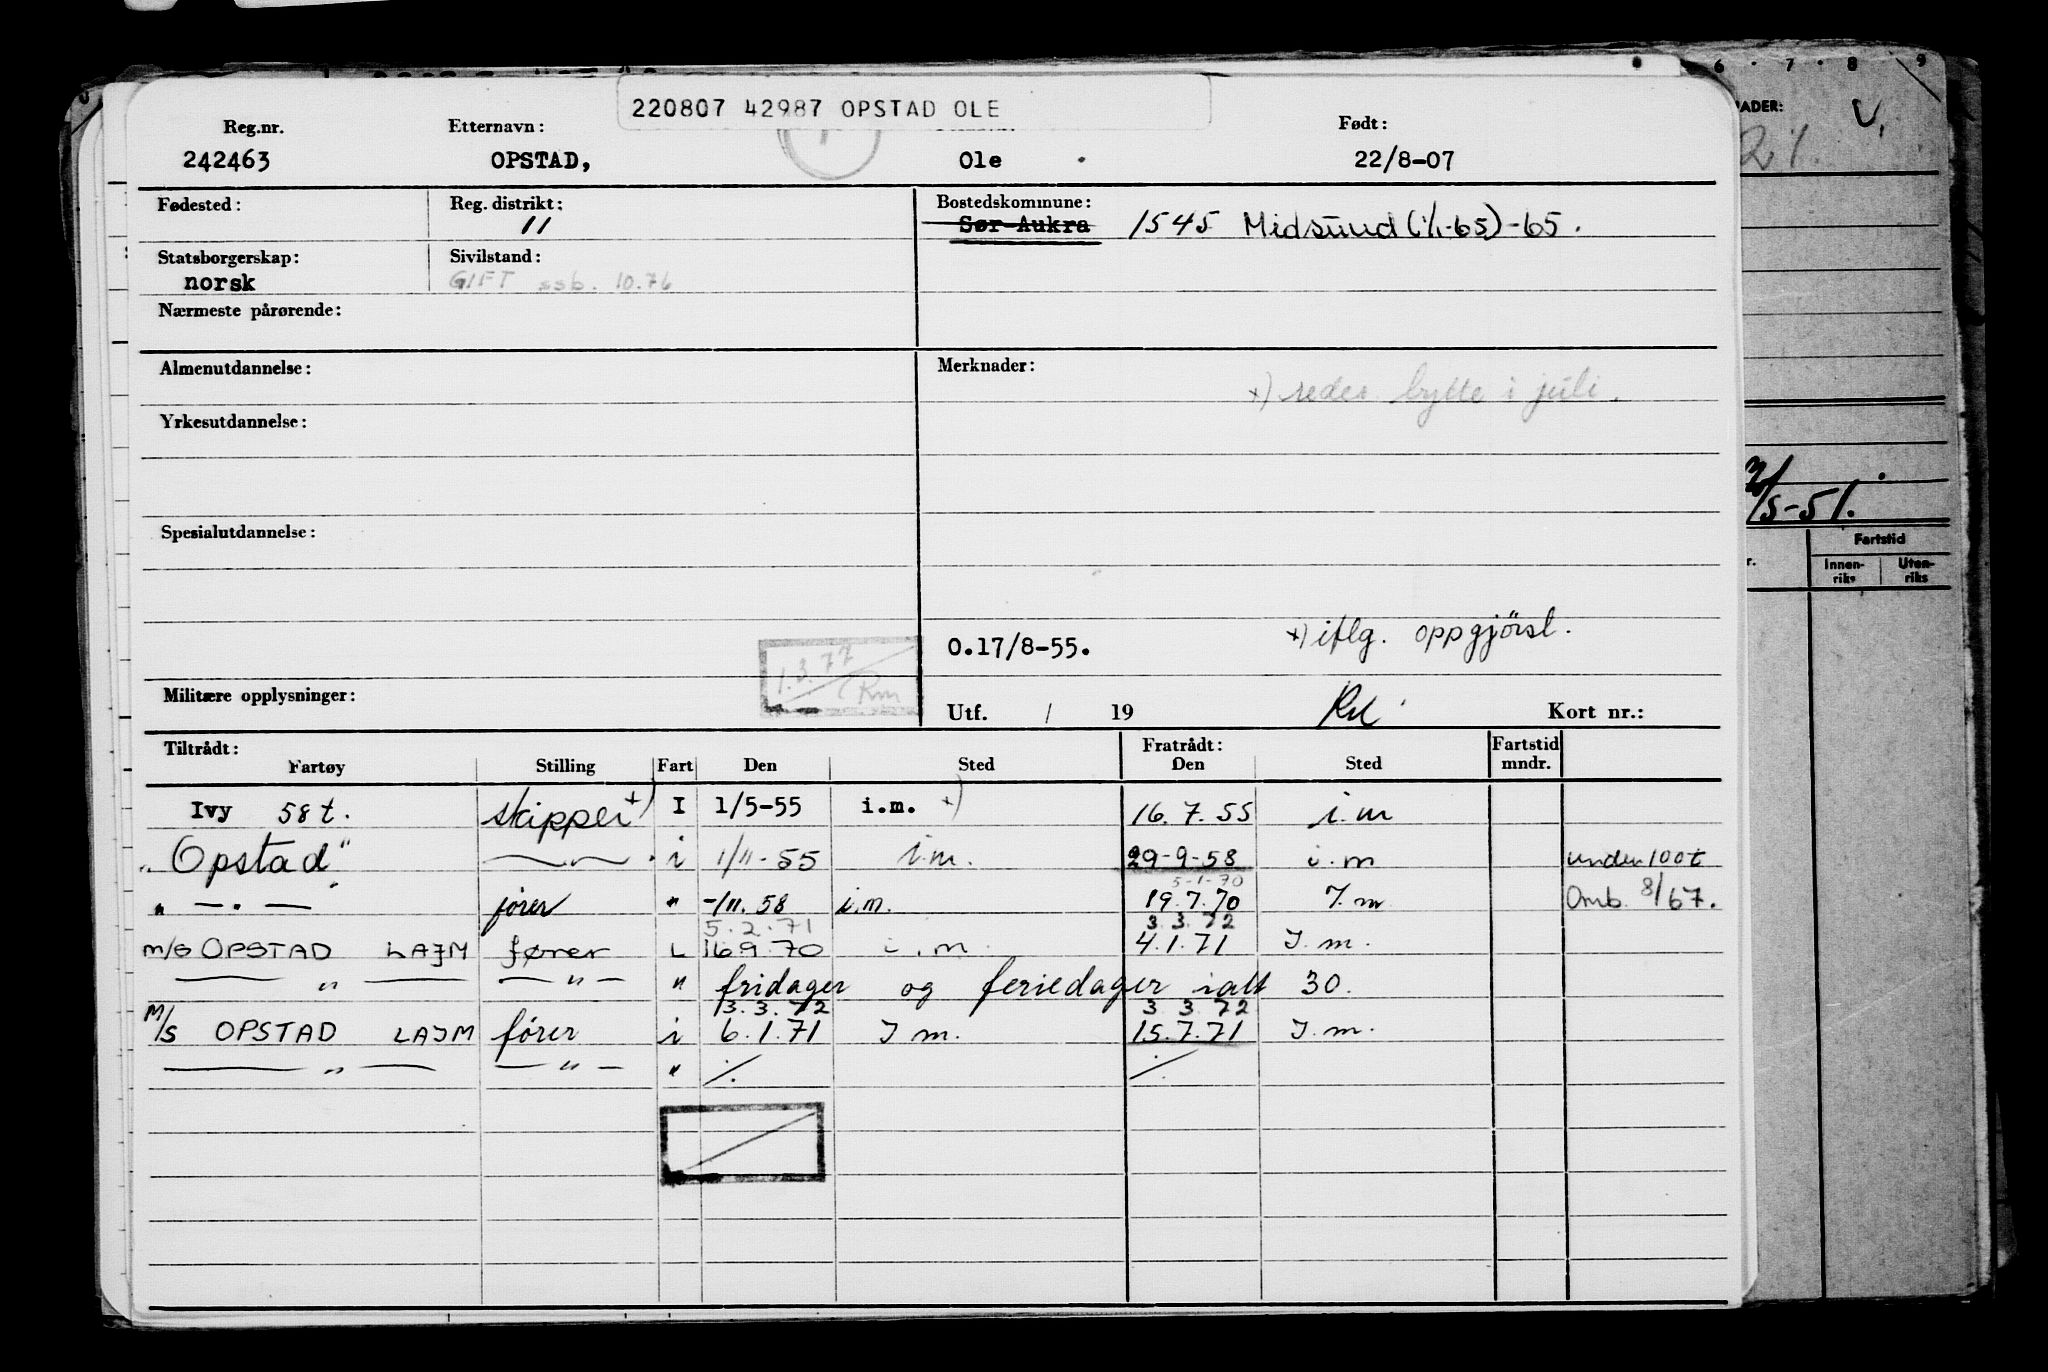 220807 42987 OPSTAD OLE
Reg.nr. Etternavn: Født:
242463 OPSTAD, Ole 22/8-07
Fødested: Reg. distrikt: 11 Bostedskommune:
Sør-Aukra 1545 Midsund (1/1-65)-65.
Statsborgerskap: norsk Sivilstand: GIFT ssb. 10.76
Nærmeste pårørende:
Almenutdannelse: Merknader:
x) reder bytte i juli.
Yrkesutdannelse:
Spesialutdannelse:
O.17/8-55. x) iflg. oppgjørsl.
1.3.77 Rm
Militære opplysninger: Utf. / 19 Kort nr.:
Tiltrådt: Fratrådt: Fartstid
Fartøy Stilling Fart Den Sted Den Sted mndr.
Ivy 58 t. skipper x) I 1/5-55 i.m. x) 16.7.55 i.m
"Opstad" — i 1/11-55 i.m. 29-9-58 i.m under 100t
5-1-70
" — " — fører " -/11.58 i.m. 19.7.70 I.m Omb. 8/67.
5.2.71 3.3.72
m/s OPSTAD LAJM fører L 16.9.70 i.m. 4.1.71 I.m.
— " — — " — " fridager og feriedager ialt 30.
3.3.72 3 3 72
M/S OPSTAD LAJM fører i 6.1.71 I m. 15.7.71 I.m.
— " — — " — " ./. ./.
6 7 8 9
NADER: V.
21.
/5-51.
r. Fartstid
Innen-riks Uten-riks